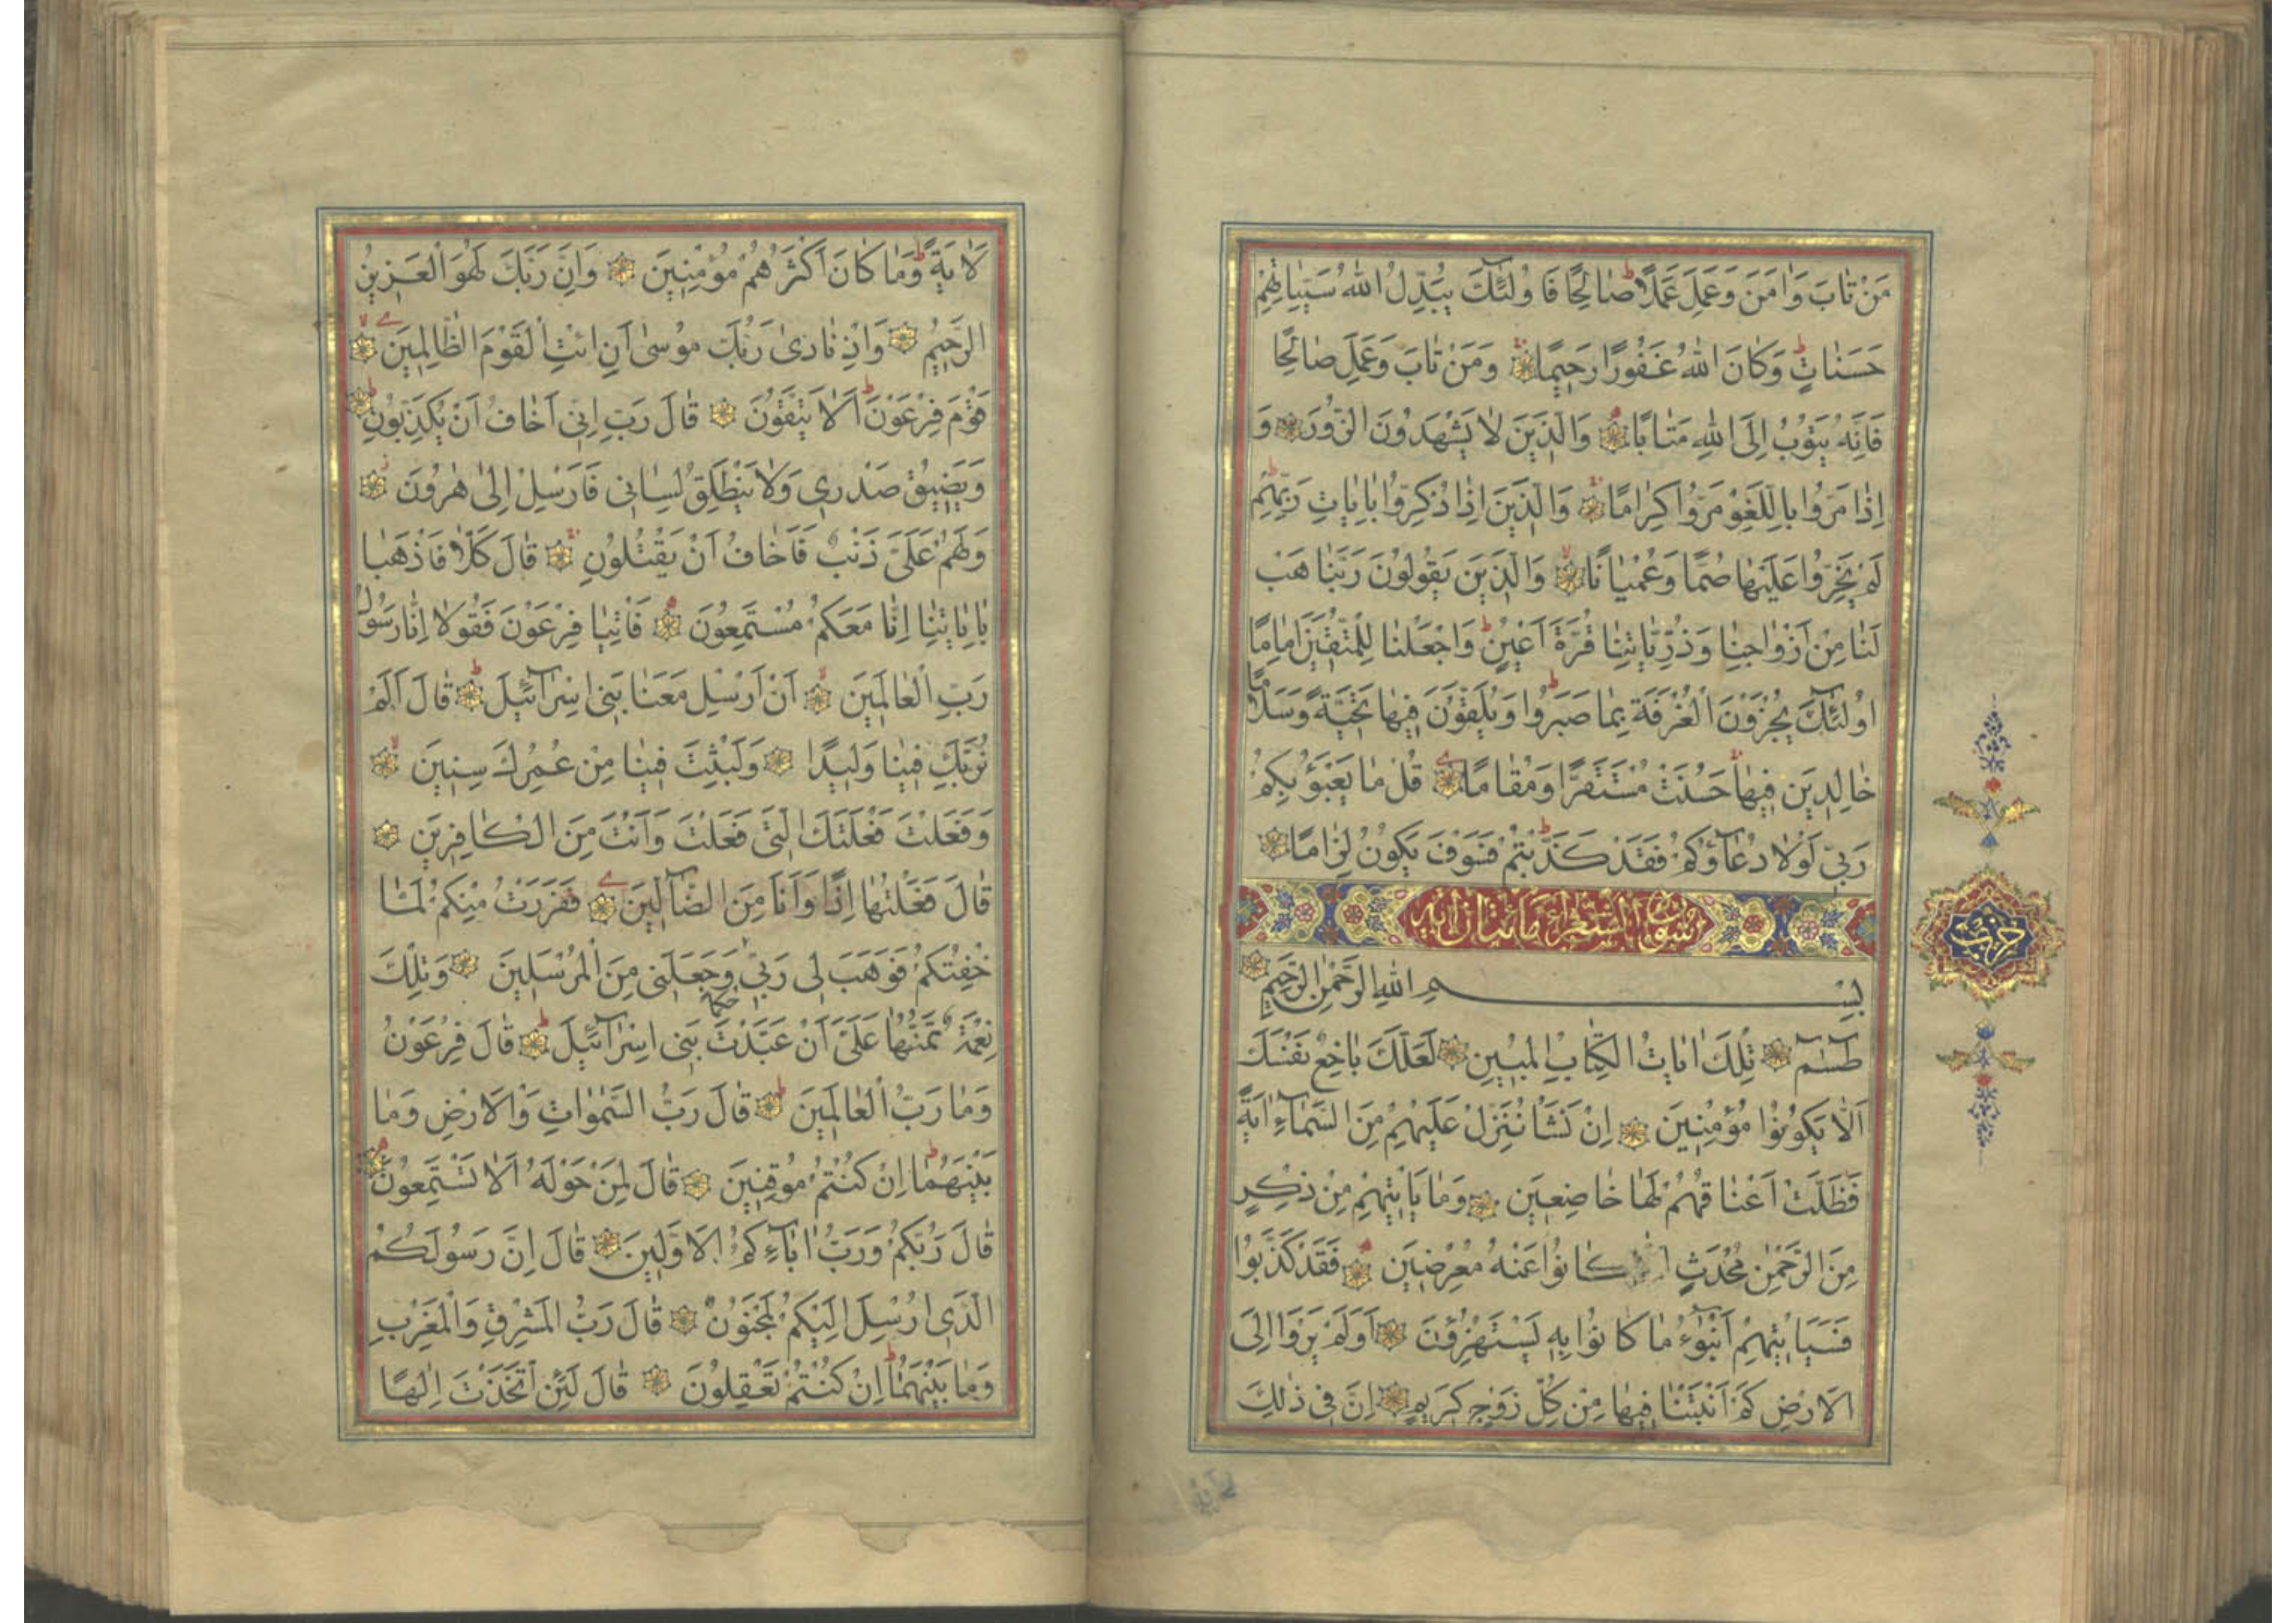 مَنْ تَابَ وَاٰمَنَ وَعَمِلَ عَمَلًا صَالِحًا فَاُولٰئِكَ يُبَدِّلُ اللّٰهُ سَيِّئَاتِهِمْ
حَسَنَاتٍ وَكَانَ اللّٰهُ غَفُورًا رَحِيمًا وَمَنْ تَابَ وَعَمِلَ صَالِحًا
فَاِنَّهُ يَتُوبُ اِلَى اللّٰهِ مَتَابًا وَالَّذِينَ لَا يَشْهَدُونَ الزُّورَ وَ
اِذَا مَرُّوا بِاللَّغْوِ مَرُّوا كِرَامًا وَالَّذِينَ اِذَا ذُكِّرُوا بِاٰيَاتِ رَبِّهِمْ
لَمْ يَخِرُّوا عَلَيْهَا صُمًّا وَعُمْيَانًا وَالَّذِينَ يَقُولُونَ رَبَّنَا هَبْ
لَنَا مِنْ اَزْوَاجِنَا وَذُرِّيَّاتِنَا قُرَّةَ اَعْيُنٍ وَاجْعَلْنَا لِلْمُتَّقِينَ اِمَامًا
اُولٰئِكَ يُجْزَوْنَ الْغُرْفَةَ بِمَا صَبَرُوا وَيُلَقَّوْنَ فِيهَا تَحِيَّةً وَسَلَامًا
خَالِدِينَ فِيهَا حَسُنَتْ مُسْتَقَرًّا وَمُقَامًا قُلْ مَا يَعْبَؤُ بِكُمْ
رَبِّي لَوْلَا دُعَاؤُكُمْ فَقَدْ كَذَّبْتُمْ فَسَوْفَ يَكُونُ لِزَامًا
سورة الشعراء مائتان اية
حزب
بِسْمِ اللّٰهِ الرَّحْمٰنِ الرَّحِيمِ
طٰسٓمٓ تِلْكَ اٰيَاتُ الْكِتَابِ الْمُبِينِ لَعَلَّكَ بَاخِعٌ نَفْسَكَ
اَلَّا يَكُونُوا مُؤْمِنِينَ اِنْ نَشَأْ نُنَزِّلْ عَلَيْهِمْ مِنَ السَّمَاءِ اٰيَةً
فَظَلَّتْ اَعْنَاقُهُمْ لَهَا خَاضِعِينَ وَمَا يَأْتِيهِمْ مِنْ ذِكْرٍ
مِنَ الرَّحْمٰنِ مُحْدَثٍ كَانُوا عَنْهُ مُعْرِضِينَ فَقَدْ كَذَّبُوا
فَسَيَأْتِيهِمْ اَنْبٰؤُا مَا كَانُوا بِهِ يَسْتَهْزِؤُنَ اَوَلَمْ يَرَوْا اِلَى
الْاَرْضِ كَمْ اَنْبَتْنَا فِيهَا مِنْ كُلِّ زَوْجٍ كَرِيمٍ اِنَّ فِي ذٰلِكَ
لَاٰيَةً وَمَا كَانَ اَكْثَرُهُمْ مُؤْمِنِينَ وَاِنَّ رَبَّكَ لَهُوَ الْعَزِيزُ
الرَّحِيمُ وَاِذْ نَادٰى رَبُّكَ مُوسٰى اَنِ ائْتِ الْقَوْمَ الظَّالِمِينَ
قَوْمَ فِرْعَوْنَ اَلَا يَتَّقُونَ قَالَ رَبِّ اِنِّي اَخَافُ اَنْ يُكَذِّبُونِ
وَيَضِيقُ صَدْرِي وَلَا يَنْطَلِقُ لِسَانِي فَاَرْسِلْ اِلٰى هٰرُونَ
وَلَهُمْ عَلَيَّ ذَنْبٌ فَاَخَافُ اَنْ يَقْتُلُونِ قَالَ كَلَّا فَاذْهَبَا
بِاٰيَاتِنَا اِنَّا مَعَكُمْ مُسْتَمِعُونَ فَأْتِيَا فِرْعَوْنَ فَقُولَا اِنَّا رَسُولُ
رَبِّ الْعَالَمِينَ اَنْ اَرْسِلْ مَعَنَا بَنِي اِسْرَائِيلَ قَالَ اَلَمْ
نُرَبِّكَ فِينَا وَلِيدًا وَلَبِثْتَ فِينَا مِنْ عُمُرِكَ سِنِينَ
وَفَعَلْتَ فَعْلَتَكَ الَّتِي فَعَلْتَ وَاَنْتَ مِنَ الْكَافِرِينَ
قَالَ فَعَلْتُهَا اِذًا وَاَنَا مِنَ الضَّالِّينَ فَفَرَرْتُ مِنْكُمْ لَمَّا
خِفْتُكُمْ فَوَهَبَ لِي رَبِّي حُكْمًا وَجَعَلَنِي مِنَ الْمُرْسَلِينَ وَتِلْكَ
نِعْمَةٌ تَمُنُّهَا عَلَيَّ اَنْ عَبَّدْتَ بَنِي اِسْرَائِيلَ قَالَ فِرْعَوْنُ
وَمَا رَبُّ الْعَالَمِينَ قَالَ رَبُّ السَّمٰوَاتِ وَالْاَرْضِ وَمَا
بَيْنَهُمَا اِنْ كُنْتُمْ مُوقِنِينَ قَالَ لِمَنْ حَوْلَهُ اَلَا تَسْتَمِعُونَ
قَالَ رَبُّكُمْ وَرَبُّ اٰبَائِكُمُ الْاَوَّلِينَ قَالَ اِنَّ رَسُولَكُمُ
الَّذِي اُرْسِلَ اِلَيْكُمْ لَمَجْنُونٌ قَالَ رَبُّ الْمَشْرِقِ وَالْمَغْرِبِ
وَمَا بَيْنَهُمَا اِنْ كُنْتُمْ تَعْقِلُونَ قَالَ لَئِنِ اتَّخَذْتَ اِلٰهًا